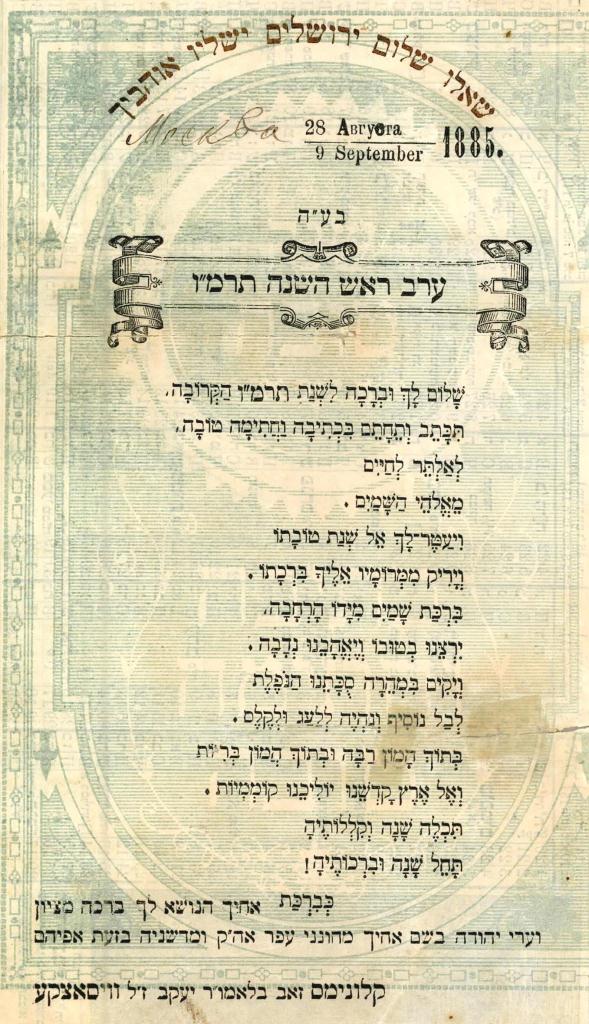 שאלו שלום ירושלים ישליו אוהביך
Москва 28 Августа 1885.
9 September
בע״ה
ערב ראש השנה תרמ״ו
שָׁלוֹם לָךְ וּבְרָכָה לִשְׁנַת תרמ״ו הַקְּרוֹבָה,
תִּכָּתֵב וְתֵחָתֵם בִּכְתִיבָה וַחֲתִימָה טוֹבָה,
לְאַלְתַּר לְחַיִּים
מֵאֱלֹהֵי הַשָּׁמָיִם.
וִיעַטֶּר־לָךְ אֵל שְׁנַת טוֹבָתוֹ
וְיָרִיק מִמְּרוֹמָיו אֵלֶיךָ בִּרְכָתוֹ.
בִּרְכַּת שָׁמַיִם מִיָּדוֹ הָרְחָבָה,
יִרְצֵנוּ בְטוּבוֹ וְיֶאֱהָבֵנוּ נְדָבָה.
וְיָקִים בִּמְהֵרָה סֻכָּתֵנוּ הַנֹּפֶלֶת
לְבַל נוֹסִיף וְנִהְיֶה לְלַעַג וּלְקֶלֶס.
בְּתוֹךְ הָמוֹן רַבָּה וּבְתוֹךְ הֲמוֹן בְּרִיּוֹת
וְאֶל אֶרֶץ קָדְשֵׁנוּ יוֹלִיכֵנוּ קוֹמְמִיּוֹת.
תִּכְלֶה שָׁנָה וְקִלְלוֹתֶיהָ
תָּחֵל שָׁנָה וּבִרְכוֹתֶיהָ!
כְּבִרְכַּת אחיך הנושא לך ברכה מציון
וערי יהודה בשם אחיך מחונני עפר אה״ק ומדשניה בזעת אפיהם
קלונימס זאב בלאמו״ר יעקב ז״ל וויסאצקע